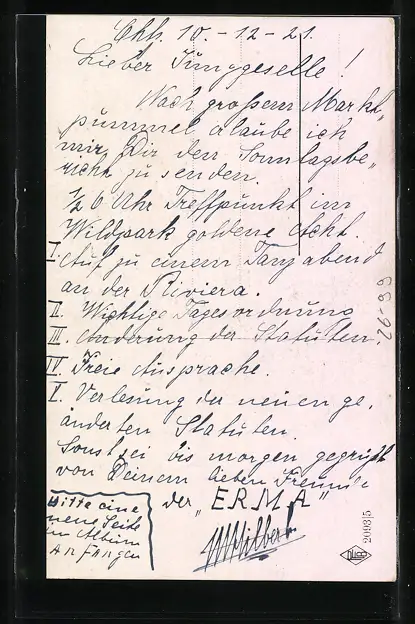 Chh. 10. - 12 - 21.
Lieber Junggeselle!
Nach grossem Markt„
pummel erlaube ich
mir Dir den Sonntagsbe„
richt zu senden.
½ 6 Uhr Treffpunkt im
Wildpark goldene Acht.
I. Auf zu einem Tanzabend
an der Riviera.
II. Wichtige Tagesordnung
III. Änderung der Statuten.
IV Freie Aussprache.
V. Verlesung der neuen ge„
änderten Statuten.
Sonst sei bis morgen gegrüßt
von Deinem lieben Freunde
der „ERMA“
W Hilbert
Bitte eine
neue Seite
im Album
Anfangen
26-99
2093|5